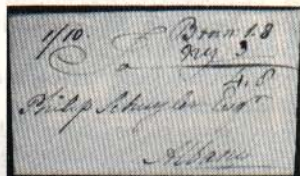 1/10. Bran 1.8
NY 3
4.8
Philip Schuyler Esqr
Albany